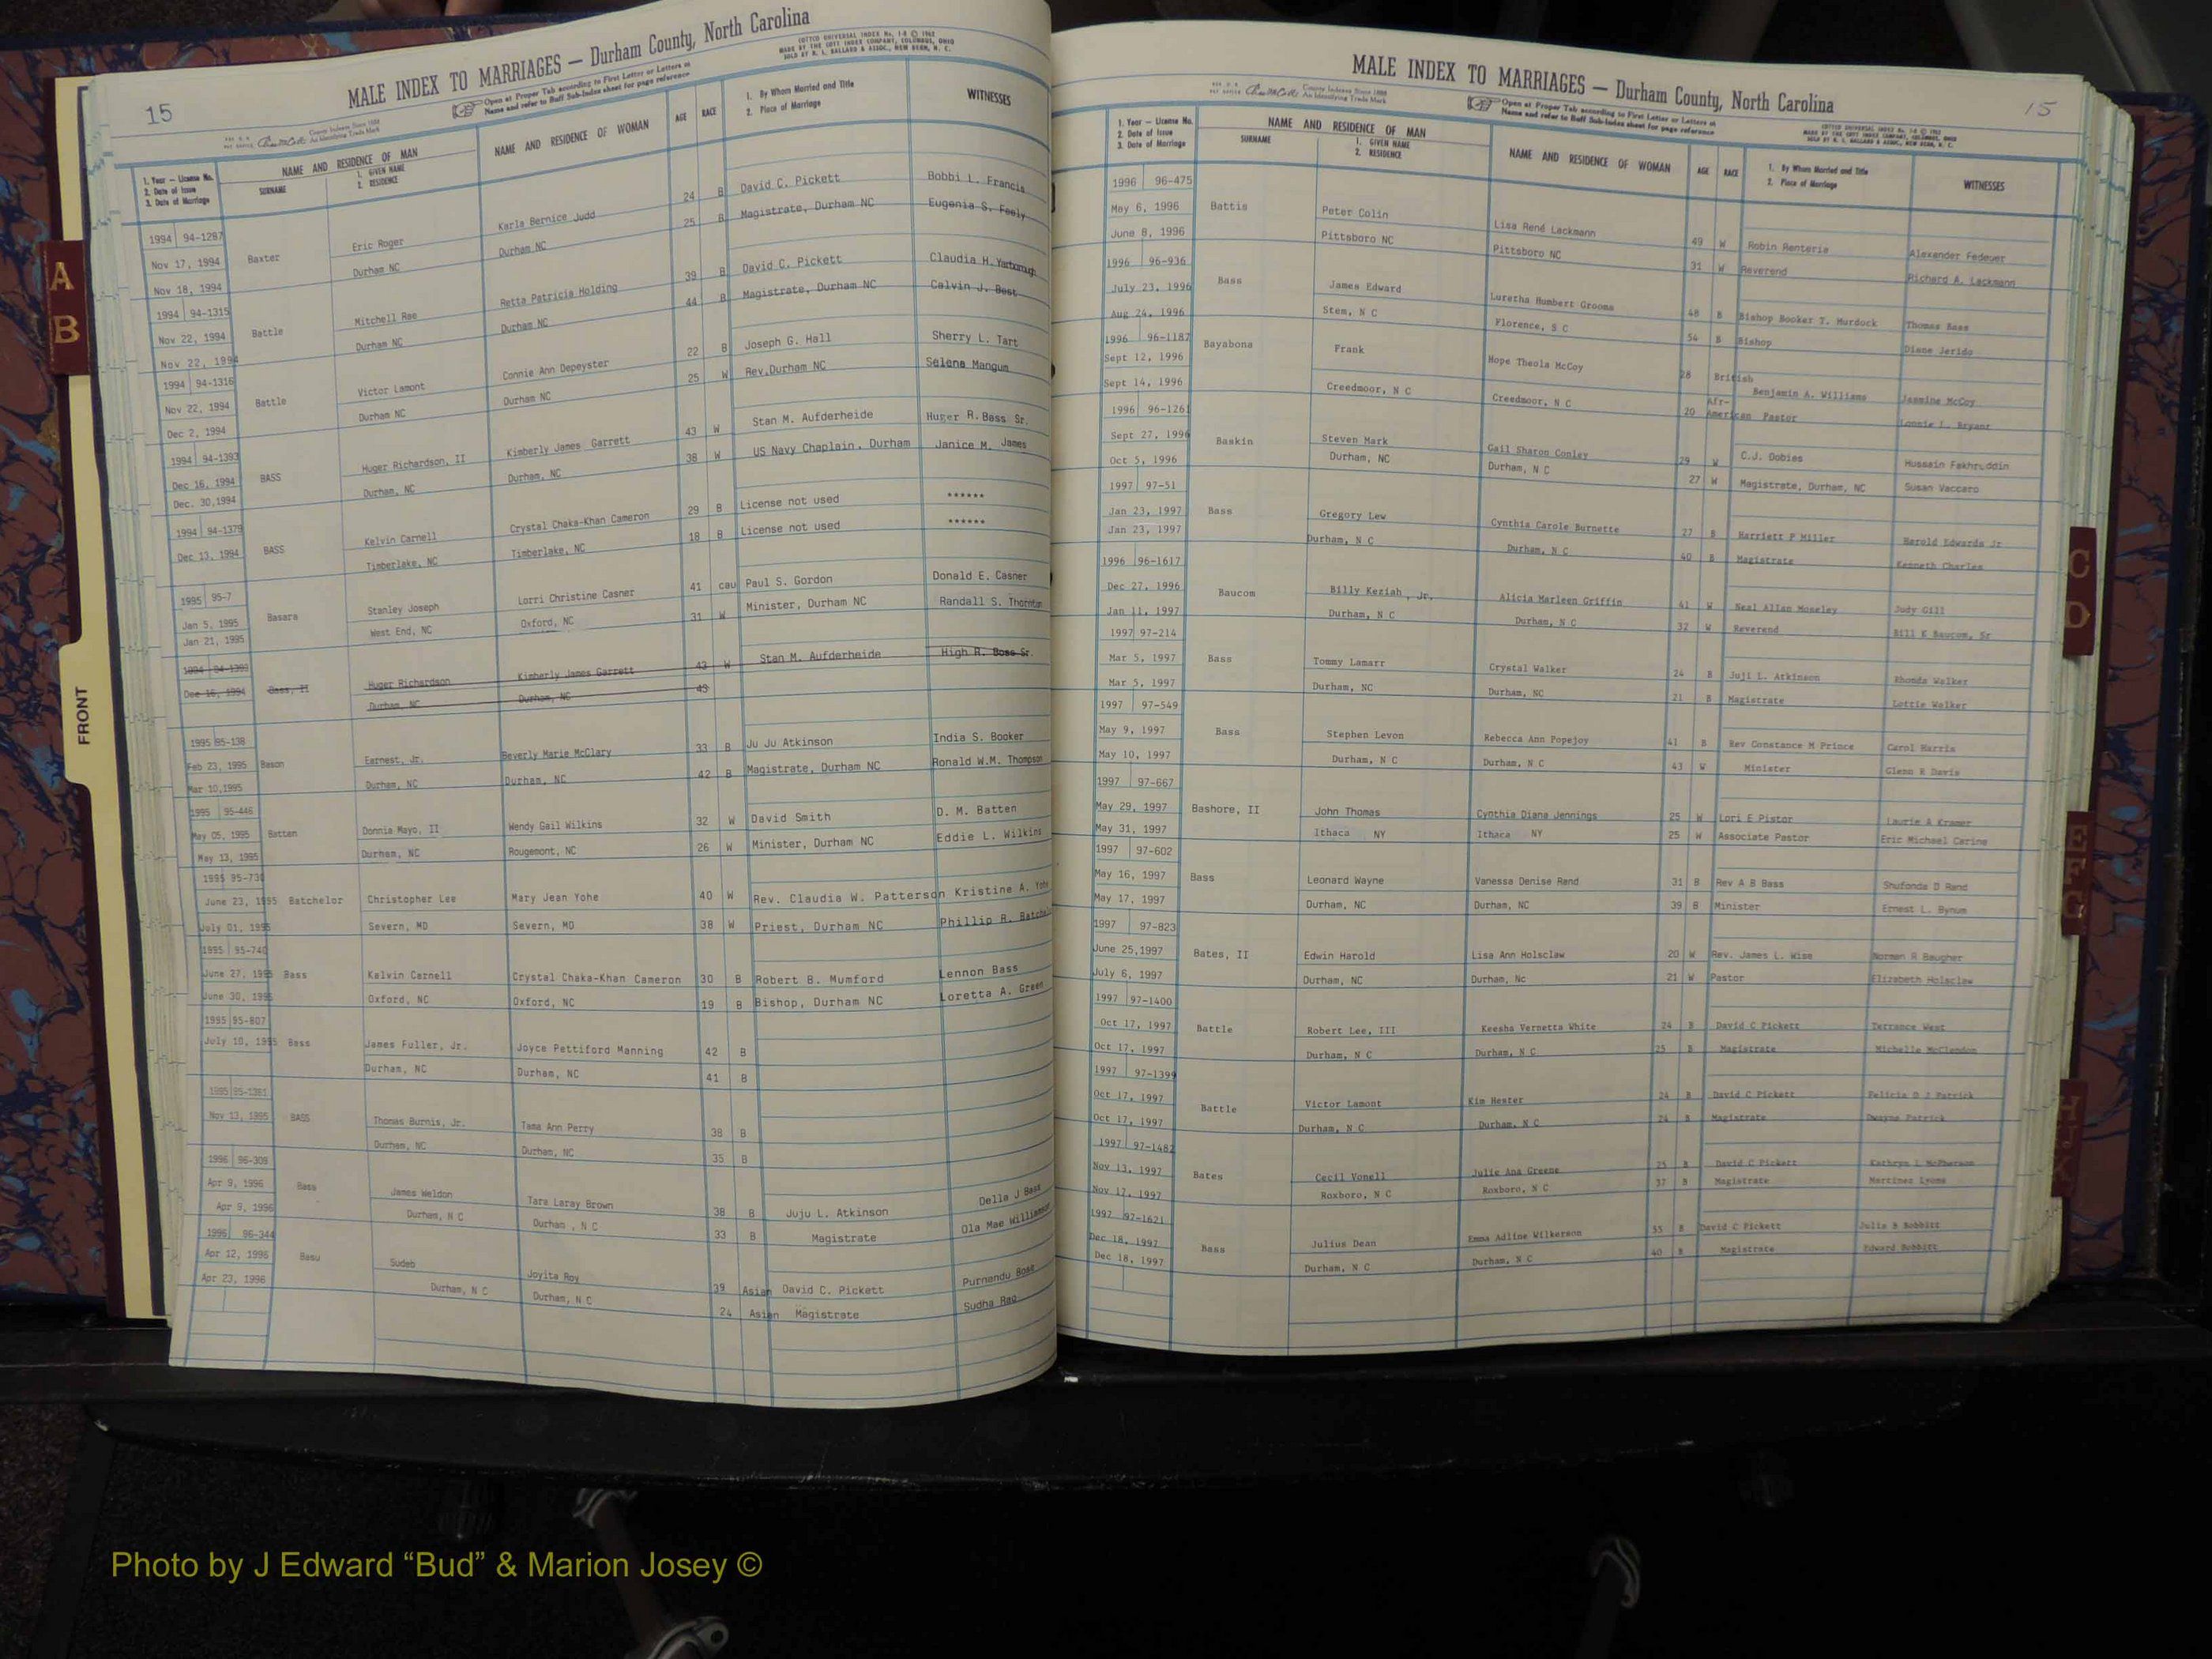 15
MALE INDEX TO MARRIAGES — Durham County, North Carolina
COTTCO UNIVERSAL INDEX No. 1-8 © 1962
MADE BY THE COTT INDEX COMPANY, COLUMBUS, OHIO
SOLD BY R. L. BALLARD & ASSOC., NEW BERN, N. C.
Open at Proper Tab according to First Letter or Letters of
Name and refer to Buff Sub-Index sheet for page reference
County Indexes Since 1888
An Identifying Trade Mark
1. Year — License No.
2. Date of Issue
3. Date of Marriage
NAME AND RESIDENCE OF MAN
SURNAME
1. GIVEN NAME
2. RESIDENCE
NAME AND RESIDENCE OF WOMAN
AGE
RACE
1. By Whom Married and Title
2. Place of Marriage
WITNESSES
1994 94-1287 Eric Roger Karla Bernice Judd 24 B David C. Pickett Bobbi L. Francis
Nov 17, 1994 Baxter Durham NC Durham NC 25 B Magistrate, Durham NC Eugenia S. Feely
Nov 18, 1994
1994 94-1315 Mitchell Rae Retta Patricia Holding 39 B David C. Pickett Claudia H. Yarborough
Nov 22, 1994 Battle Durham NC Durham NC 44 B Magistrate, Durham NC Calvin J. Best
Nov 22, 1994
1994 94-1316 Victor Lamont Connie Ann Depeyster 22 B Joseph G. Hall Sherry L. Tart
Nov 22, 1994 Battle Durham NC Durham NC 25 W Rev.Durham NC Selena Mangum
Dec 2, 1994
1994 94-1393 Huger Richardson, II Kimberly James Garrett 43 W Stan M. Aufderheide Huger R. Bass Sr.
Dec 16, 1994 BASS Durham, NC Durham, NC 38 W US Navy Chaplain, Durham Janice M. James
Dec. 30,1994
1994 94-1379 Kelvin Carnell Crystal Chaka-Khan Cameron 29 B License not used ******
Dec 13, 1994 BASS Timberlake, NC Timberlake, NC 18 B License not used ******
1995 95-7 Stanley Joseph Lorri Christine Casner 41 cau Paul S. Gordon Donald E. Casner
Jan 5, 1995 Basara West End, NC Oxford, NC 31 W Minister, Durham NC Randall S. Thornton
Jan 21, 1995
1994 94-1393 Huger Richardson Kimberly James Garrett 43 W Stan M. Aufderheide High R. Boss Sr.
Dec 16, 1994 Bass, II Durham, NC Durham, NC 43
1995 95-138 Earnest, Jr. Beverly Marie McClary 33 B Ju Ju Atkinson India S. Booker
Feb 23, 1995 Bason Durham, NC Durham, NC 42 B Magistrate, Durham NC Ronald W.M. Thompson
Mar 10,1995
1995 95-446 Donnie Mayo, II Wendy Gail Wilkins 32 W David Smith D. M. Batten
May 05, 1995 Batten Durham, NC Rougemont, NC 26 W Minister, Durham NC Eddie L. Wilkins
May 13, 1995
1995 95-730
June 23, 1995 Batchelor Christopher Lee Mary Jean Yohe 40 W Rev. Claudia W. Patterson Kristine A. Yohe
July 01, 1995 Severn, MD Severn, MD 38 W Priest, Durham NC Phillip R.
1995 95-740
June 27, 1995 Bass Kelvin Carnell Crystal Chaka-Khan Cameron 30 B Robert B. Mumford Lennon Bass
June 30, 1995 Oxford, NC Oxford, NC 19 B Bishop, Durham NC Loretta A. Green
1995 95-807
July 10, 1995 Bass James Fuller, Jr. Joyce Pettiford Manning 42 B
Durham, NC Durham, NC 41 B
1995 95-1361
Nov 13, 1995 BASS Thomas Burnis, Jr. Tama Ann Perry 38 B
Durham, NC Durham, NC 35 B
1996 96-309
Apr 9, 1996 Bass James Weldon Tara Laray Brown 38 B Juju L. Atkinson Della J Bass
Apr 9, 1996 Durham, N C Durham , N C 33 B Magistrate Ola Mae Williamson
1996 96-344
Apr 12, 1996 Basu Sudeb Joyita Roy 39 Asian David C. Pickett Purnendu Bose
Apr 23, 1996 Durham, N C Durham, N C 24 Asian Magistrate Sudha Rao
MALE INDEX TO MARRIAGES — Durham County, North Carolina
15
County Indexes Since 1888
An Identifying Trade Mark
Open at Proper Tab according to First Letter or Letters of
Name and refer to Buff Sub-Index sheet for page reference
COTTCO UNIVERSAL INDEX No. 1-8 © 1962
MADE BY THE COTT INDEX COMPANY, COLUMBUS, OHIO
SOLD BY R. L. BALLARD & ASSOC., NEW BERN, N. C.
1. Year — License No.
2. Date of Issue
3. Date of Marriage
NAME AND RESIDENCE OF MAN
SURNAME
1. GIVEN NAME
2. RESIDENCE
NAME AND RESIDENCE OF WOMAN
AGE
RACE
1. By Whom Married and Title
2. Place of Marriage
WITNESSES
1996 96-475
May 6, 1996 Battis Peter Colin Lisa René Lackmann 49 W Robin Renteria Alexander Fedeuer
June 8, 1996 Pittsboro NC Pittsboro NC 31 W Reverend Richard A. Lackmann
1996 96-936
July 23, 1996 Bass James Edward Luretha Humbert Grooms 48 B Bishop Booker T. Murdock Thomas Bass
Aug 24, 1996 Stem, N C Florence, S C 54 B Bishop Diane Jerido
1996 96-1187
Sept 12, 1996 Bayabona Frank Hope Theola McCoy 28 British Benjamin A. Williams Jasmine McCoy
Sept 14, 1996 Creedmoor, N C Creedmoor, N C 20 Afr-American Pastor Lonnie L. Bryant
1996 96-1261
Sept 27, 1996 Baskin Steven Mark Gail Sharon Conley 29 W C.J. Dobies Hussain Fakhruddin
Oct 5, 1996 Durham, NC Durham, N C 27 W Magistrate, Durham, NC Susan Vaccaro
1997 97-51
Jan 23, 1997 Bass Gregory Lew Cynthia Carole Burnette 27 B Harriett P Miller Harold Edwards Jr
Jan 23, 1997 Durham, N C Durham, N C 40 B Magistrate Kenneth Charles
1996 96-1617
Dec 27, 1996 Baucom Billy Keziah, Jr. Alicia Marleen Griffin 41 W Neal Allen Moseley Judy Gill
Jan 11, 1997 Durham, N C Durham, N C 32 W Reverend Bill K Baucom, Sr
1997 97-214
Mar 5, 1997 Bass Tommy Lamarr Crystal Walker 24 B Juji L. Atkinson Rhonda Walker
Mar 5, 1997 Durham, NC Durham, NC 21 B Magistrate Lottie Walker
1997 97-549
May 9, 1997 Bass Stephen Levon Rebecca Ann Popejoy 41 B Rev Constance M Prince Carol Harris
May 10, 1997 Durham, N C Durham, N C 43 W Minister Glenn R Davis
1997 97-667
May 29, 1997 Bashore, II John Thomas Cynthia Diana Jennings 25 W Lori E Pistor Laurie A Kramer
May 31, 1997 Ithaca NY Ithaca NY 25 W Associate Pastor Eric Michael Carine
1997 97-602
May 16, 1997 Bass Leonard Wayne Vanessa Denise Rand 31 B Rev A B Bass Shufonda D Rand
May 17, 1997 Durham, NC Durham, NC 39 B Minister Ernest L. Bynum
1997 97-823
June 25,1997 Bates, II Edwin Harold Lisa Ann Holsclaw 20 W Rev. James L. Wise Norman R Baugher
July 6, 1997 Durham, NC Durham, Nc 21 W Pastor Elizabeth Holsclaw
1997 97-1400
Oct 17, 1997 Battle Robert Lee, III Keesha Vernetta White 24 B David C Pickett Terrance West
Oct 17, 1997 Durham, N C Durham, N C 25 B Magistrate Michelle McClendon
1997 97-1399
Oct 17, 1997 Battle Victor Lamont Kim Hester 24 B David C Pickett Felicia D J Patrick
Oct 17, 1997 Durham, N C Durham, N C 24 B Magistrate Dwayne Patrick
1997 97-1482
Nov 13, 1997 Bates Cecil Vonell Julie Ana Greene 25 B David C Pickett Kathryn L McPherson
Nov 17, 1997 Roxboro, N C Roxboro, N C 37 B Magistrate Martinez Lyons
1997 97-1621
Dec 18, 1997 Bass Julius Dean Emma Adline Wilkerson 55 B David C Pickett Julia B Bobbitt
Dec 18, 1997 Durham, N C Durham, N C 40 B Magistrate Edward Bobbitt
A
B
FRONT
C
D
E
F
G
H
Photo by J Edward “Bud” & Marion Josey ©